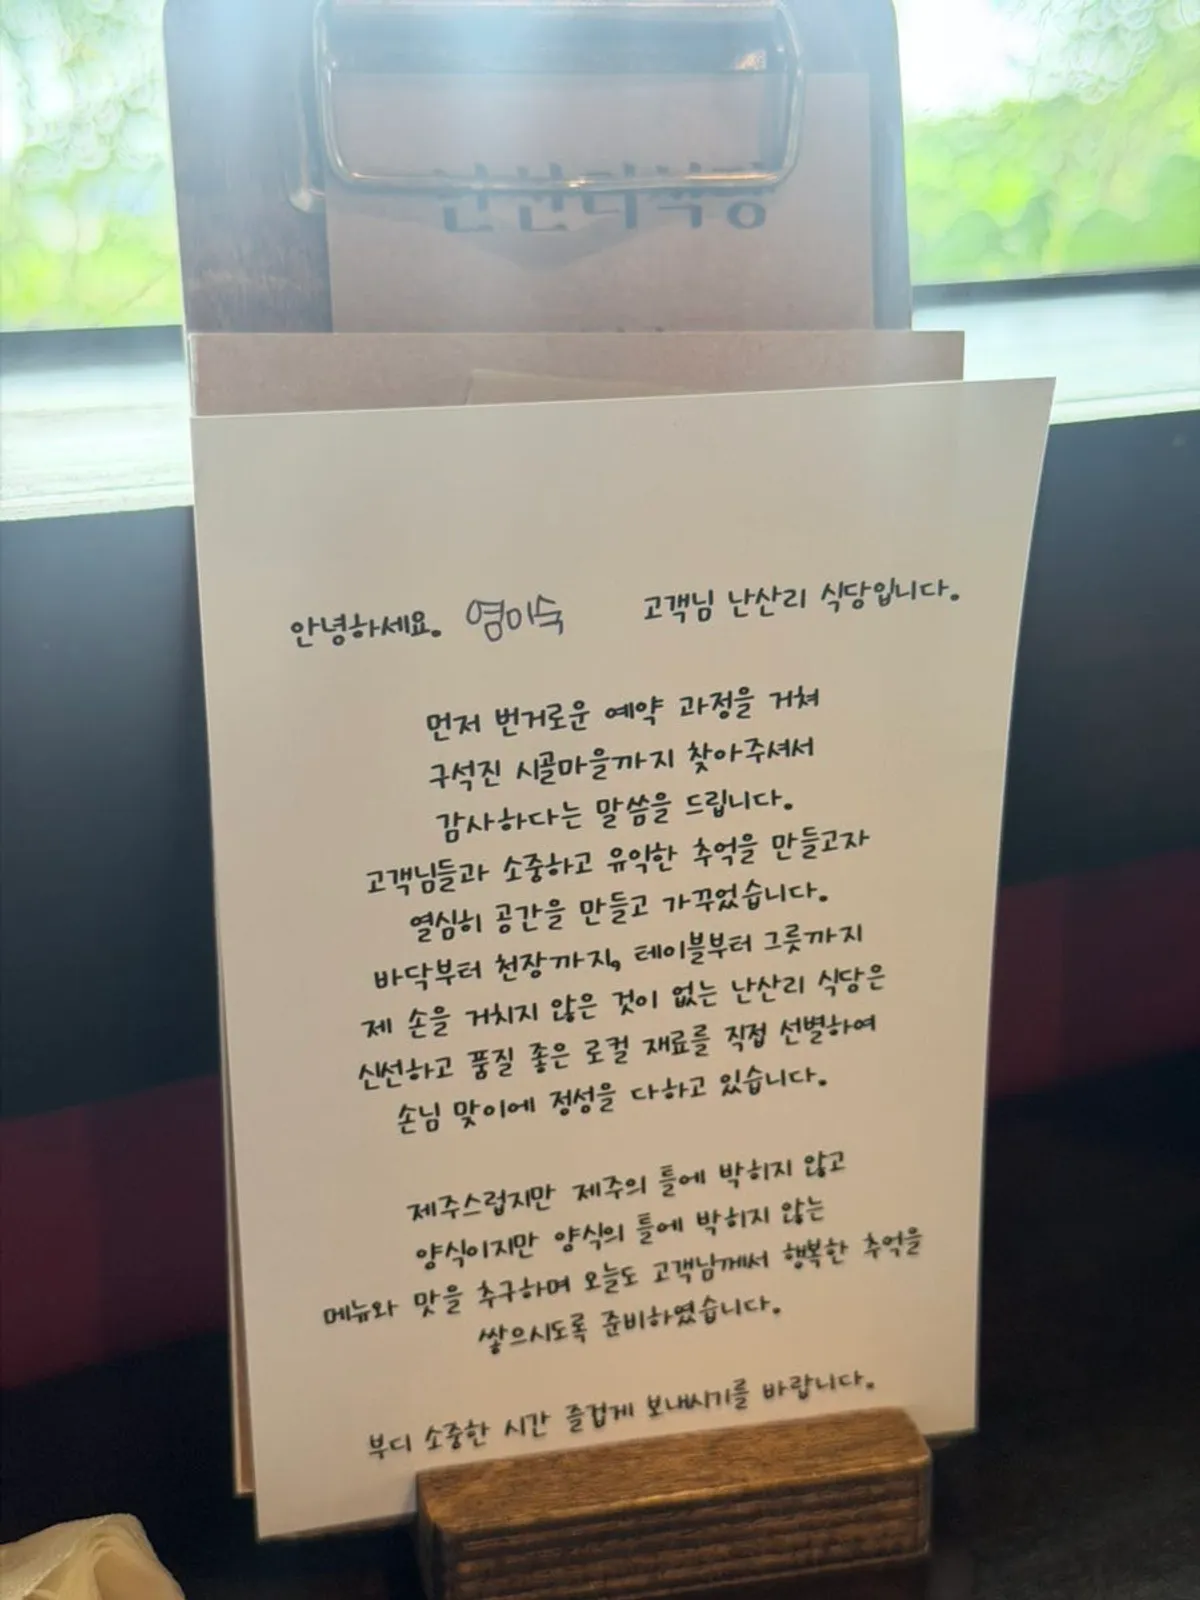 난산리식당
안녕하세요. 염미숙 고객님 난산리 식당입니다.
먼저 번거로운 예약 과정을 거쳐
구석진 시골마을까지 찾아주셔서
감사하다는 말씀을 드립니다.
고객님들과 소중하고 유익한 추억을 만들고자
열심히 공간을 만들고 가꾸었습니다.
바닥부터 천장까지, 테이블부터 그릇까지
제 손을 거치지 않은 것이 없는 난산리 식당은
신선하고 품질 좋은 로컬 재료를 직접 선별하여
손님 맞이에 정성을 다하고 있습니다.
제주스럽지만 제주의 틀에 박히지 않고
양식이지만 양식의 틀에 박히지 않는
메뉴와 맛을 추구하며 오늘도 고객님께서 행복한 추억을
쌓으시도록 준비하였습니다.
부디 소중한 시간 즐겁게 보내시기를 바랍니다.